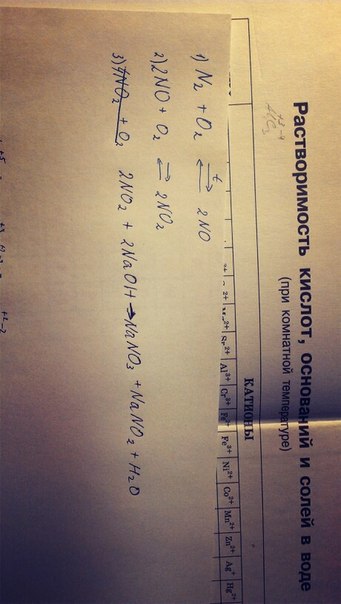 Растворимость кислот, оснований и солей в воде
(при комнатной температуре)
КАТИОНЫ
Sr²⁺ Al³⁺ Cr³⁺ Fe²⁺ Fe³⁺ Ni²⁺ Co²⁺ Mn²⁺ Zn²⁺ Ag⁺ Hg²⁺
1) N₂ + O₂ ⇄ᵗ 2NO
2) 2NO + O₂ ⇄ 2NO₂
3) 4NO₂ + O₂ 2NO₂ + 2NaOH → NaNO₃ + NaNO₂ + H₂O